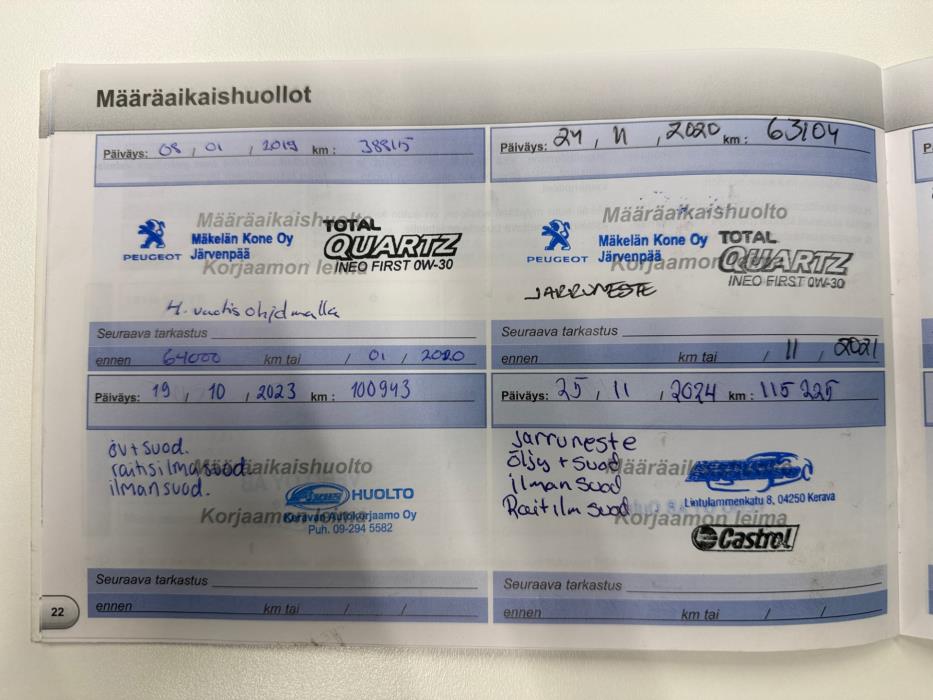 Määräaikaishuollot
Päiväys: 08 / 01 / 2019 km : 38815
Määräaikaishuolto
PEUGEOT
Mäkelän Kone Oy
Järvenpää
TOTAL
QUARTZ
INEO FIRST 0W-30
Korjaamon leima
4. vuotis ohjelmalla
Seuraava tarkastus
ennen 64000 km tai / 01 / 2020
Päiväys: 24 / 11 / 2020 km : 63104
Määräaikaishuolto
PEUGEOT
Mäkelän Kone Oy
Järvenpää
TOTAL
QUARTZ
INEO FIRST 0W-30
Korjaamon leima
JARRUNESTE
Seuraava tarkastus
ennen km tai / 11 / 2021
Päiväys: 19 / 10 / 2023 km : 100943
öv+suod.
raitisilmasuod.
ilmansuod.
Määräaikaishuolto
HUOLTO
Keravan Autokorjaamo Oy
Puh. 09-294 5582
Korjaamon leima
Seuraava tarkastus
ennen km tai / /
Päiväys: 25 / 11 / 2024 km : 115 225
Jarruneste
Öljy + Suod
ilman Suod
Raitilm suod
Määräaikaishuolto
Lintulammenkatu 8, 04250 Kerava
Korjaamon leima
Castrol
Seuraava tarkastus
ennen km tai / /
22